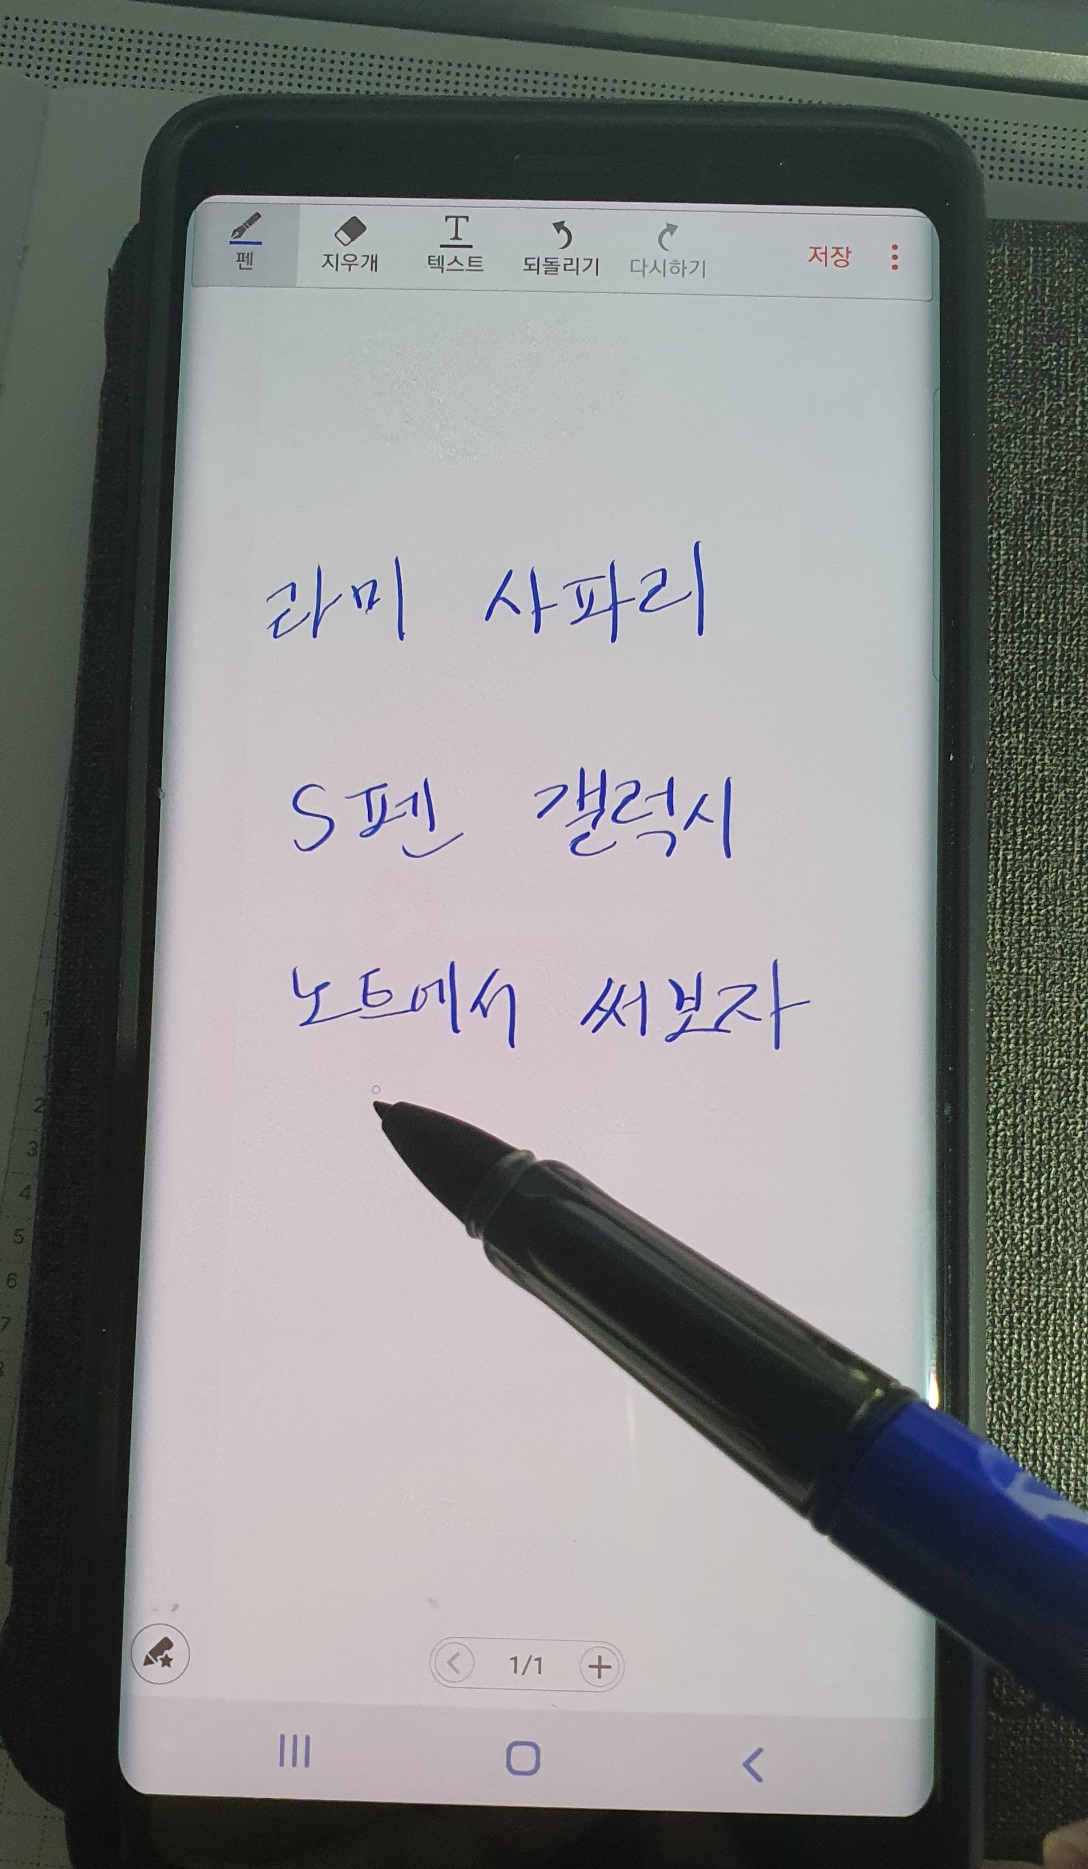 펜 지우개 텍스트 되돌리기 다시하기 저장
라미 사파리
S펜 갤럭시
노트에서 써보자
1/1
1
2
3
4
5
6
7
8